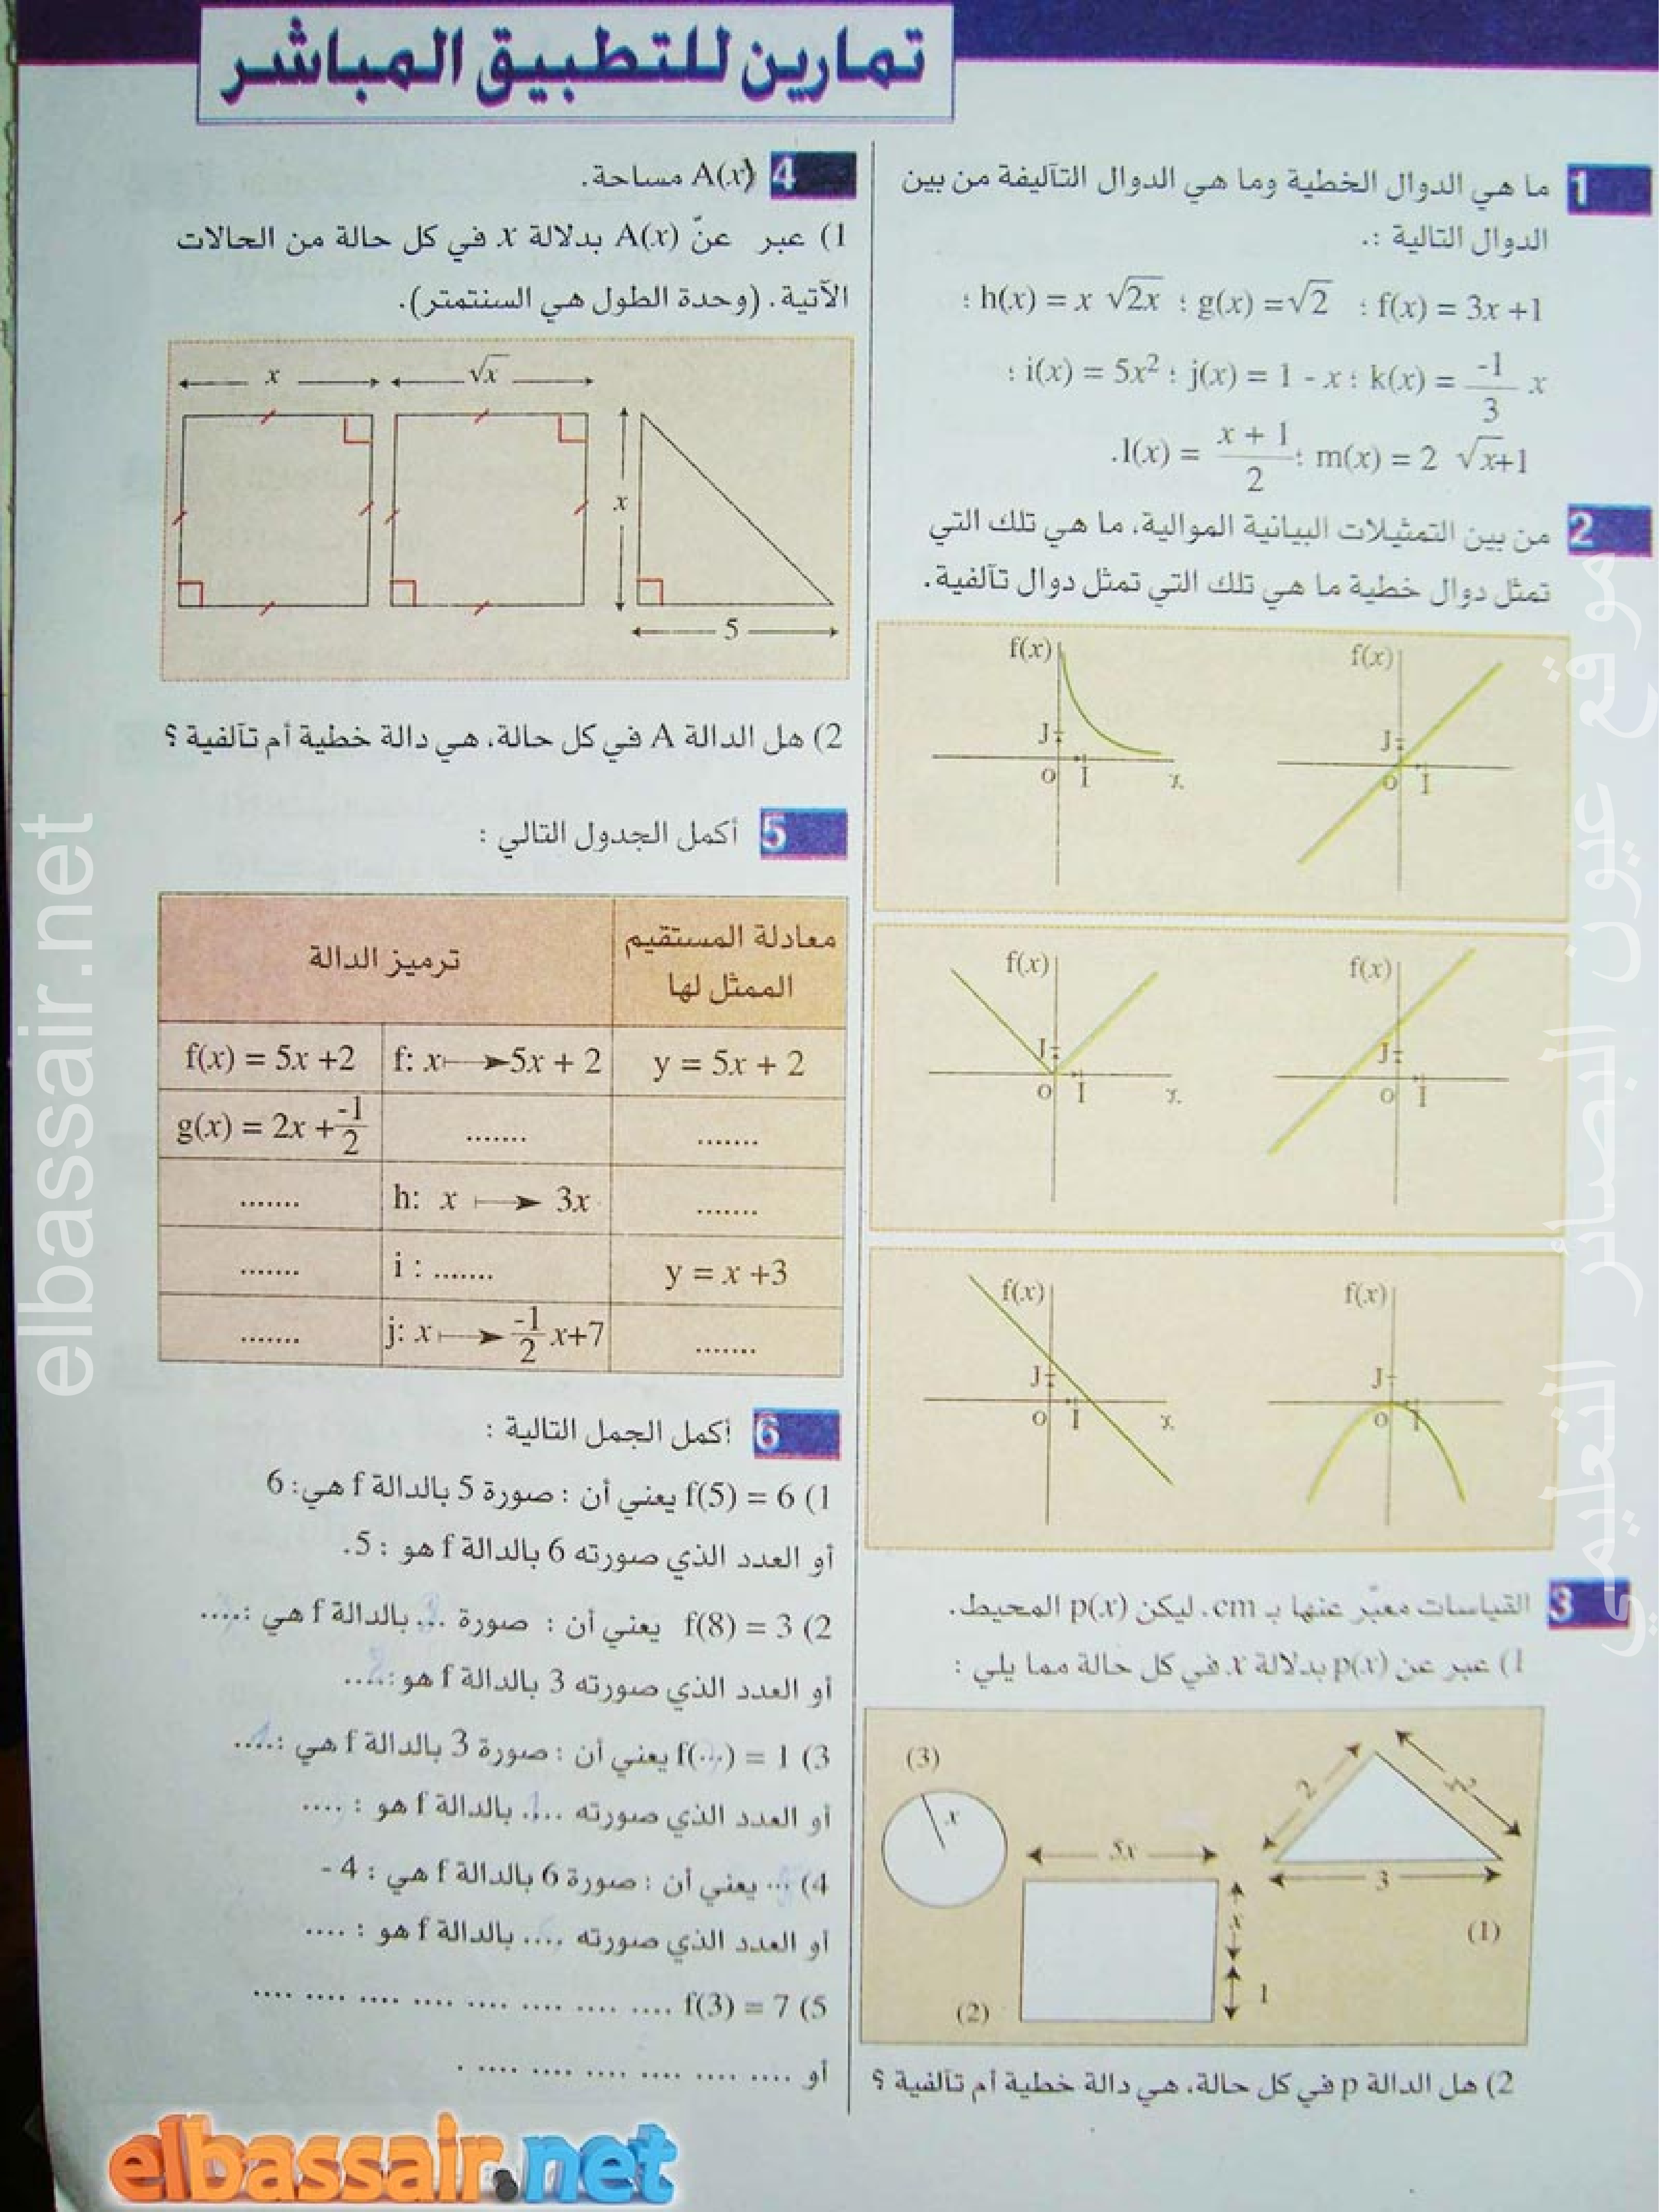 تمارين للتطبيق المباشر
1 ما هي الدوال الخطية وما هي الدوال التآليفة من بين
الدوال التالية :.
f(x) = 3x +1 ؛ g(x) =√2 ؛ h(x) = x √2x ؛
k(x) = -1/3 x ؛ j(x) = 1 - x ؛ i(x) = 5x² ؛
m(x) = 2 √x+1 ؛ l(x) = x + 1/2.
2 من بين التمثيلات البيانية الموالية، ما هي تلك التي
تمثل دوال خطية ما هي تلك التي تمثل دوال تآلفية.
f(x) J O I x
f(x) J O I
f(x) J O I x
f(x) J O I
f(x) J O I x
f(x) J O I
3 القياسات معبّر عنها بـ cm. ليكن p(x) المحيط.
1) عبر عن p(x) بدلالة x في كل حالة مما يلي :
(3) x
5x x 1 (2)
2 3 (1)
2) هل الدالة p في كل حالة، هي دالة خطية أم تآلفية ؟
4 A(x) مساحة.
1) عبر عنّ A(x) بدلالة x في كل حالة من الحالات
الآتية. (وحدة الطول هي السنتمتر).
x √x x 5
2) هل الدالة A في كل حالة، هي دالة خطية أم تآلفية ؟
5 أكمل الجدول التالي :
معادلة المستقيم
الممثل لها
ترميز الدالة
f(x) = 5x +2 f: x⟼5x + 2 y = 5x + 2
g(x) = 2x +-1/2 ....... .......
....... h: x ⟼ 3x .......
....... i : ....... y = x +3
....... j: x⟼ -1/2 x+7 .......
6 أكمل الجمل التالية :
1) f(5) = 6 يعني أن : صورة 5 بالدالة f هي: 6
أو العدد الذي صورته 6 بالدالة f هو : 5.
2) f(8) = 3 يعني أن : صورة ... بالدالة f هي :....
أو العدد الذي صورته 3 بالدالة f هو :....
3) f(...) = 1 يعني أن : صورة 3 بالدالة f هي :....
أو العدد الذي صورته .... بالدالة f هو : ....
4) ... يعني أن : صورة 6 بالدالة f هي : 4 -
أو العدد الذي صورته .... بالدالة f هو : ....
5) f(3) = 7 .... .... .... .... .... .... .... ....
أو .... .... .... .... .... .... .
elbassair.net
موقع عيون البصائر التعليمي
elbassair.net